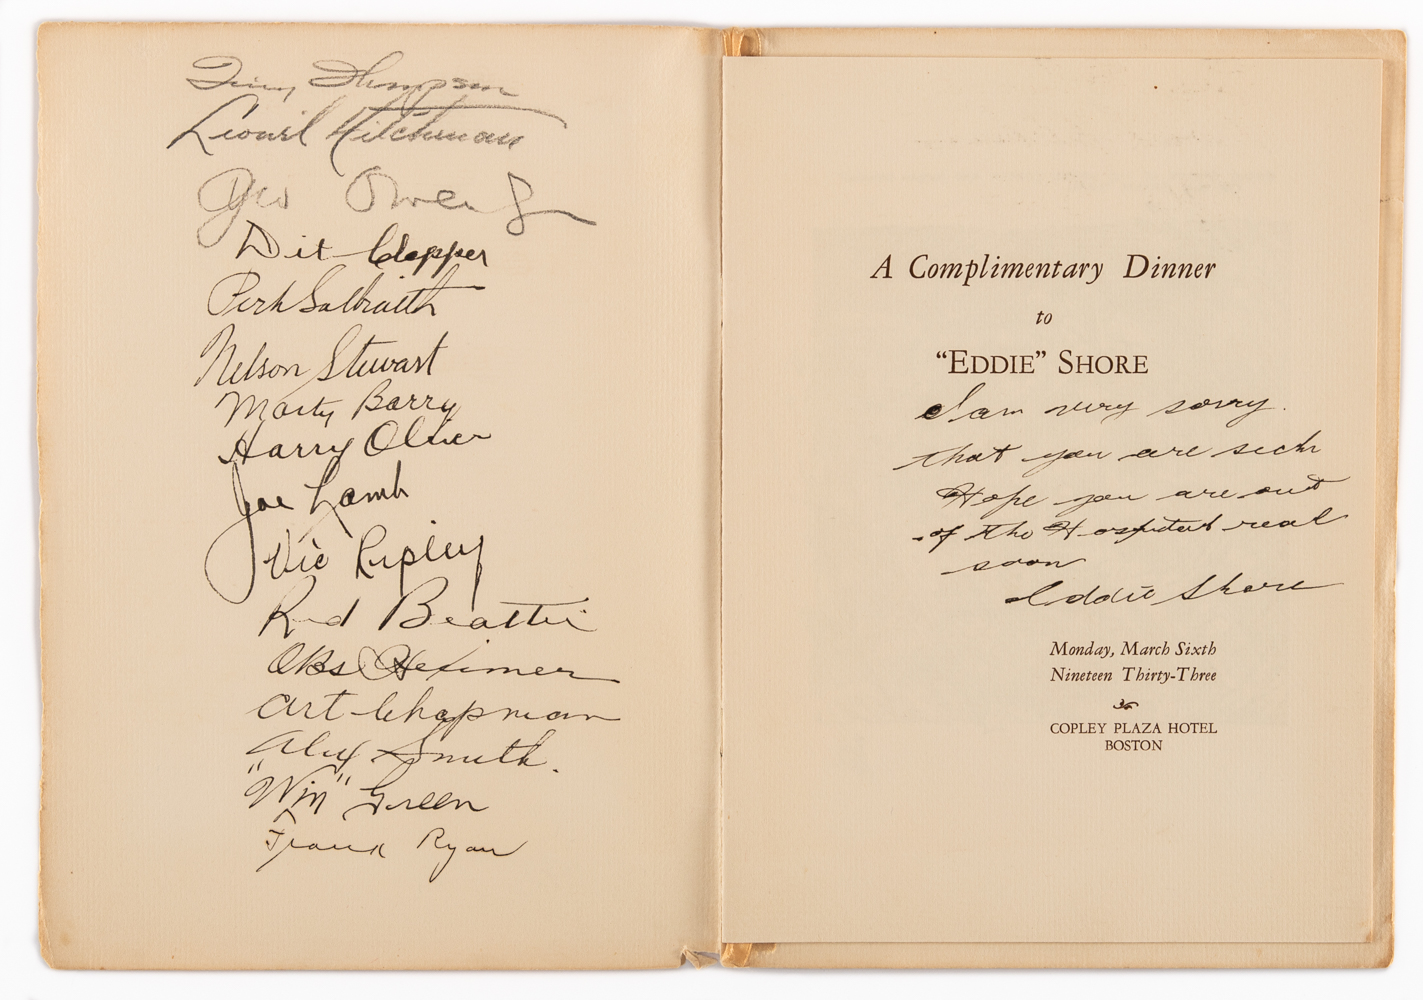 Tiny Thompson
Lionel Hitchman
Geo Owen Jr
Dit Clapper
Perk Galbraith
Nelson Stewart
Marty Barry
Harry Oliver
Joe Lamb
Vic Ripley
Red Beattie
Obs Heximer
Art Chapman
Alex Smith.
"Win" Green
Frank Ryan
A Complimentary Dinner
to
"EDDIE" SHORE
I am very sorry.
that you are sick
Hope you are out
of the Hospital real
soon
Eddie Shore
Monday, March Sixth
Nineteen Thirty-Three
COPLEY PLAZA HOTEL
BOSTON